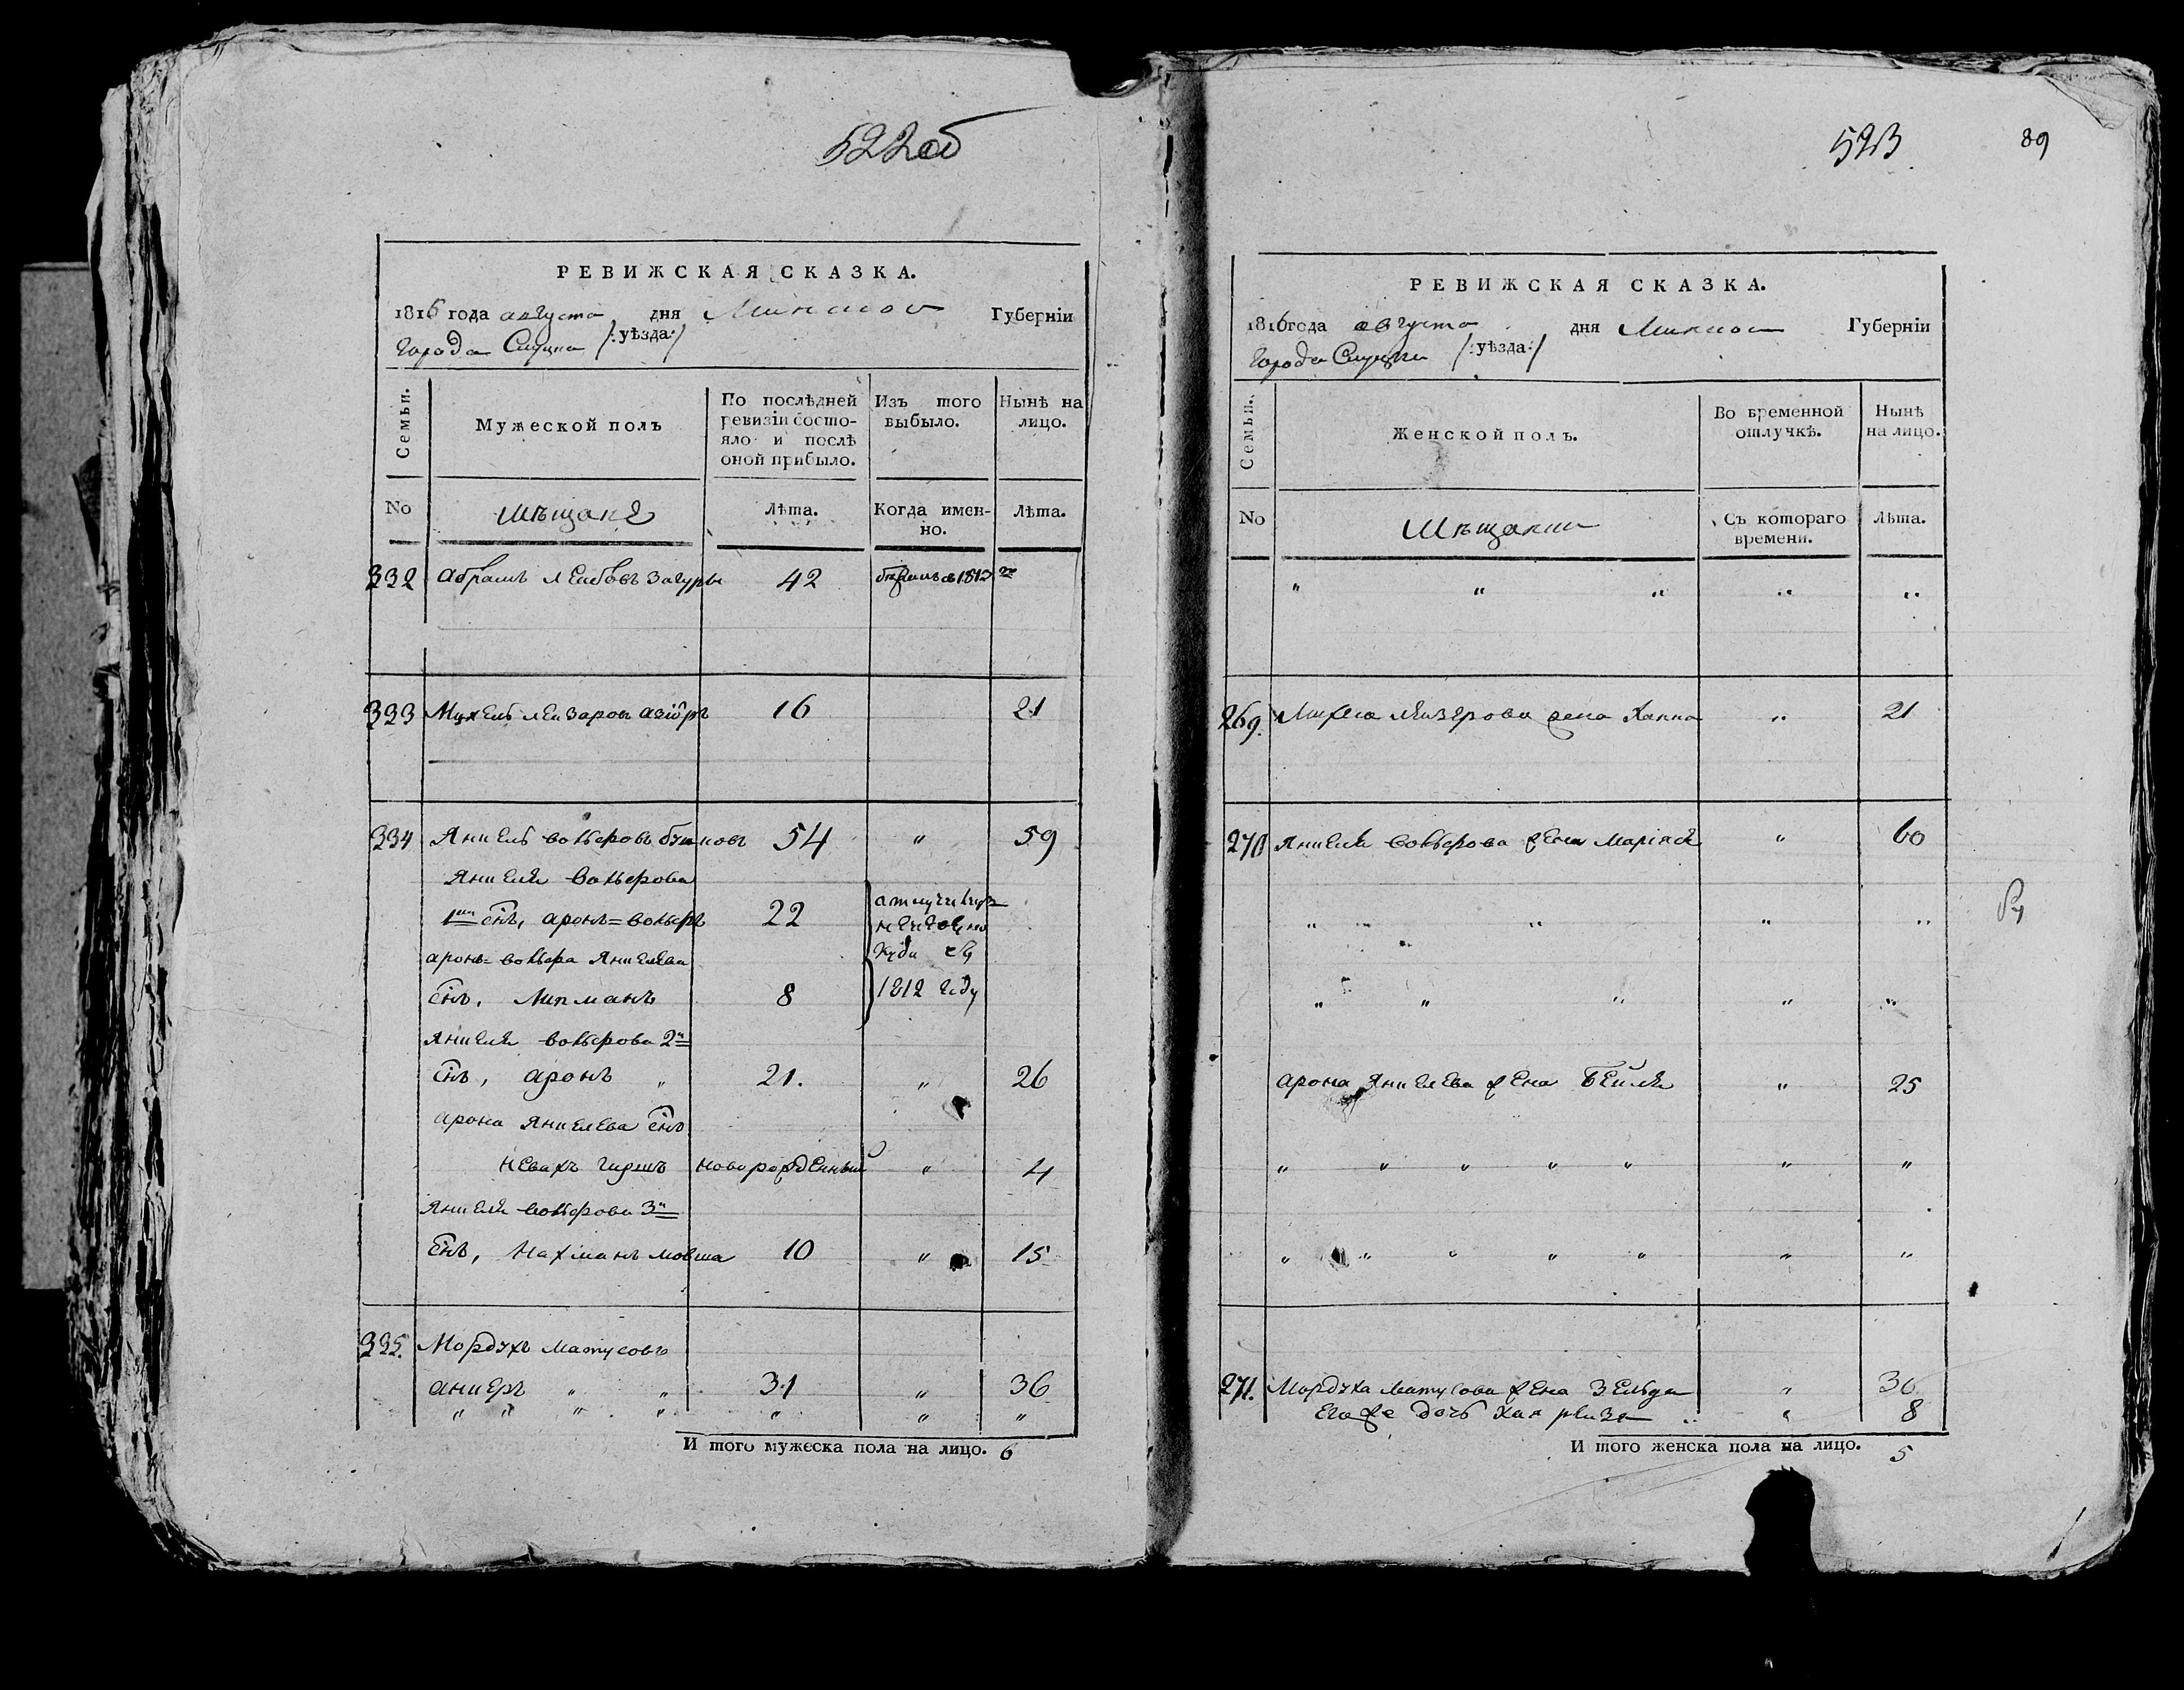 522об
РЕВИЖСКАЯ СКАЗКА.
1816 года августа дня Минской Губерніи
города Слуцка /:уѣзда:/
Семьи.
Мужеской полъ
По послѣдней ревизіи состо-
яло и послѣ
оной прибыло.
Изъ того
выбыло.
Нынѣ на
лицо.
No
мѣщане
Лѣта.
Когда имен-
но.
Лѣта.
332 Абрамъ Лейбовъ 42
333 16 21
334 Янкель вольфовъ 54 „ 59
Янкеля вольфова
1й сн̃ъ, аронъ=вольфъ 22
аронъ=вольфа Янкелева
сн̃ъ, Липманъ 8
отлучился
неведомо
куда въ
1812 году
Янкеля вольфова 2й
сн̃ъ, аронъ „ 21. „ 26
арона Янкелева сн̃ъ
невахъ гиршъ новорожденный „ 4
Янкеля вольфова 3й
сн̃ъ, нахманъ мовша 10 „ 15
335. Мордухъ Матусовъ
„ „ 31 „ 36
„ „ „ „ „ „ „
И того мужеска пола на лицо. 6
523
89
РЕВИЖСКАЯ СКАЗКА.
1816 года августа дня Минской Губерніи
города Слуцка /:уѣзда:/
Семьи.
Женской полъ.
Во временной
отлучкѣ.
Нынѣ
на лицо.
No
Мѣщанки
Съ котораго
времени.
Лѣта.
„ „ „ „ „
269. Лейзерова жена Ханна „ 21
270 Янкеля вольфова жена Маріася „ 60
„ „ „ „ „
„ „ „ „ „
арона Янкелева жена Бейля „ 25
„ „ „ „ „ „ „
„ „ „ „ „ „ „
271. Мордуха Матусова жена Зельда „ 30
Его же дочь „ 8
И того женска пола на лицо. 5